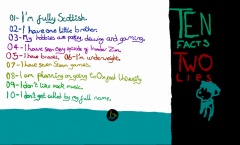 01- I'm fully Scottish.
02- I have one little brother.
03- My hobbies are poetry, drawing and gaming.
04- I have seen every episode of Invader Zim.
05- I have braces. 06- I'm underweight.
07- I have seven Steam games.
08- I am planning on going to Oxford University.
09- I don't like rock music.
10- I don't get called by my full name.
TEN
FACTS
TWO
LIES